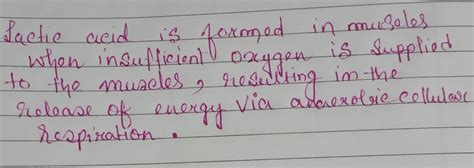 Lactic acid is formed in muscles
when insufficient oxygen is supplied
to the muscles, resulting in the
release of energy via anaerobic cellular
respiration.